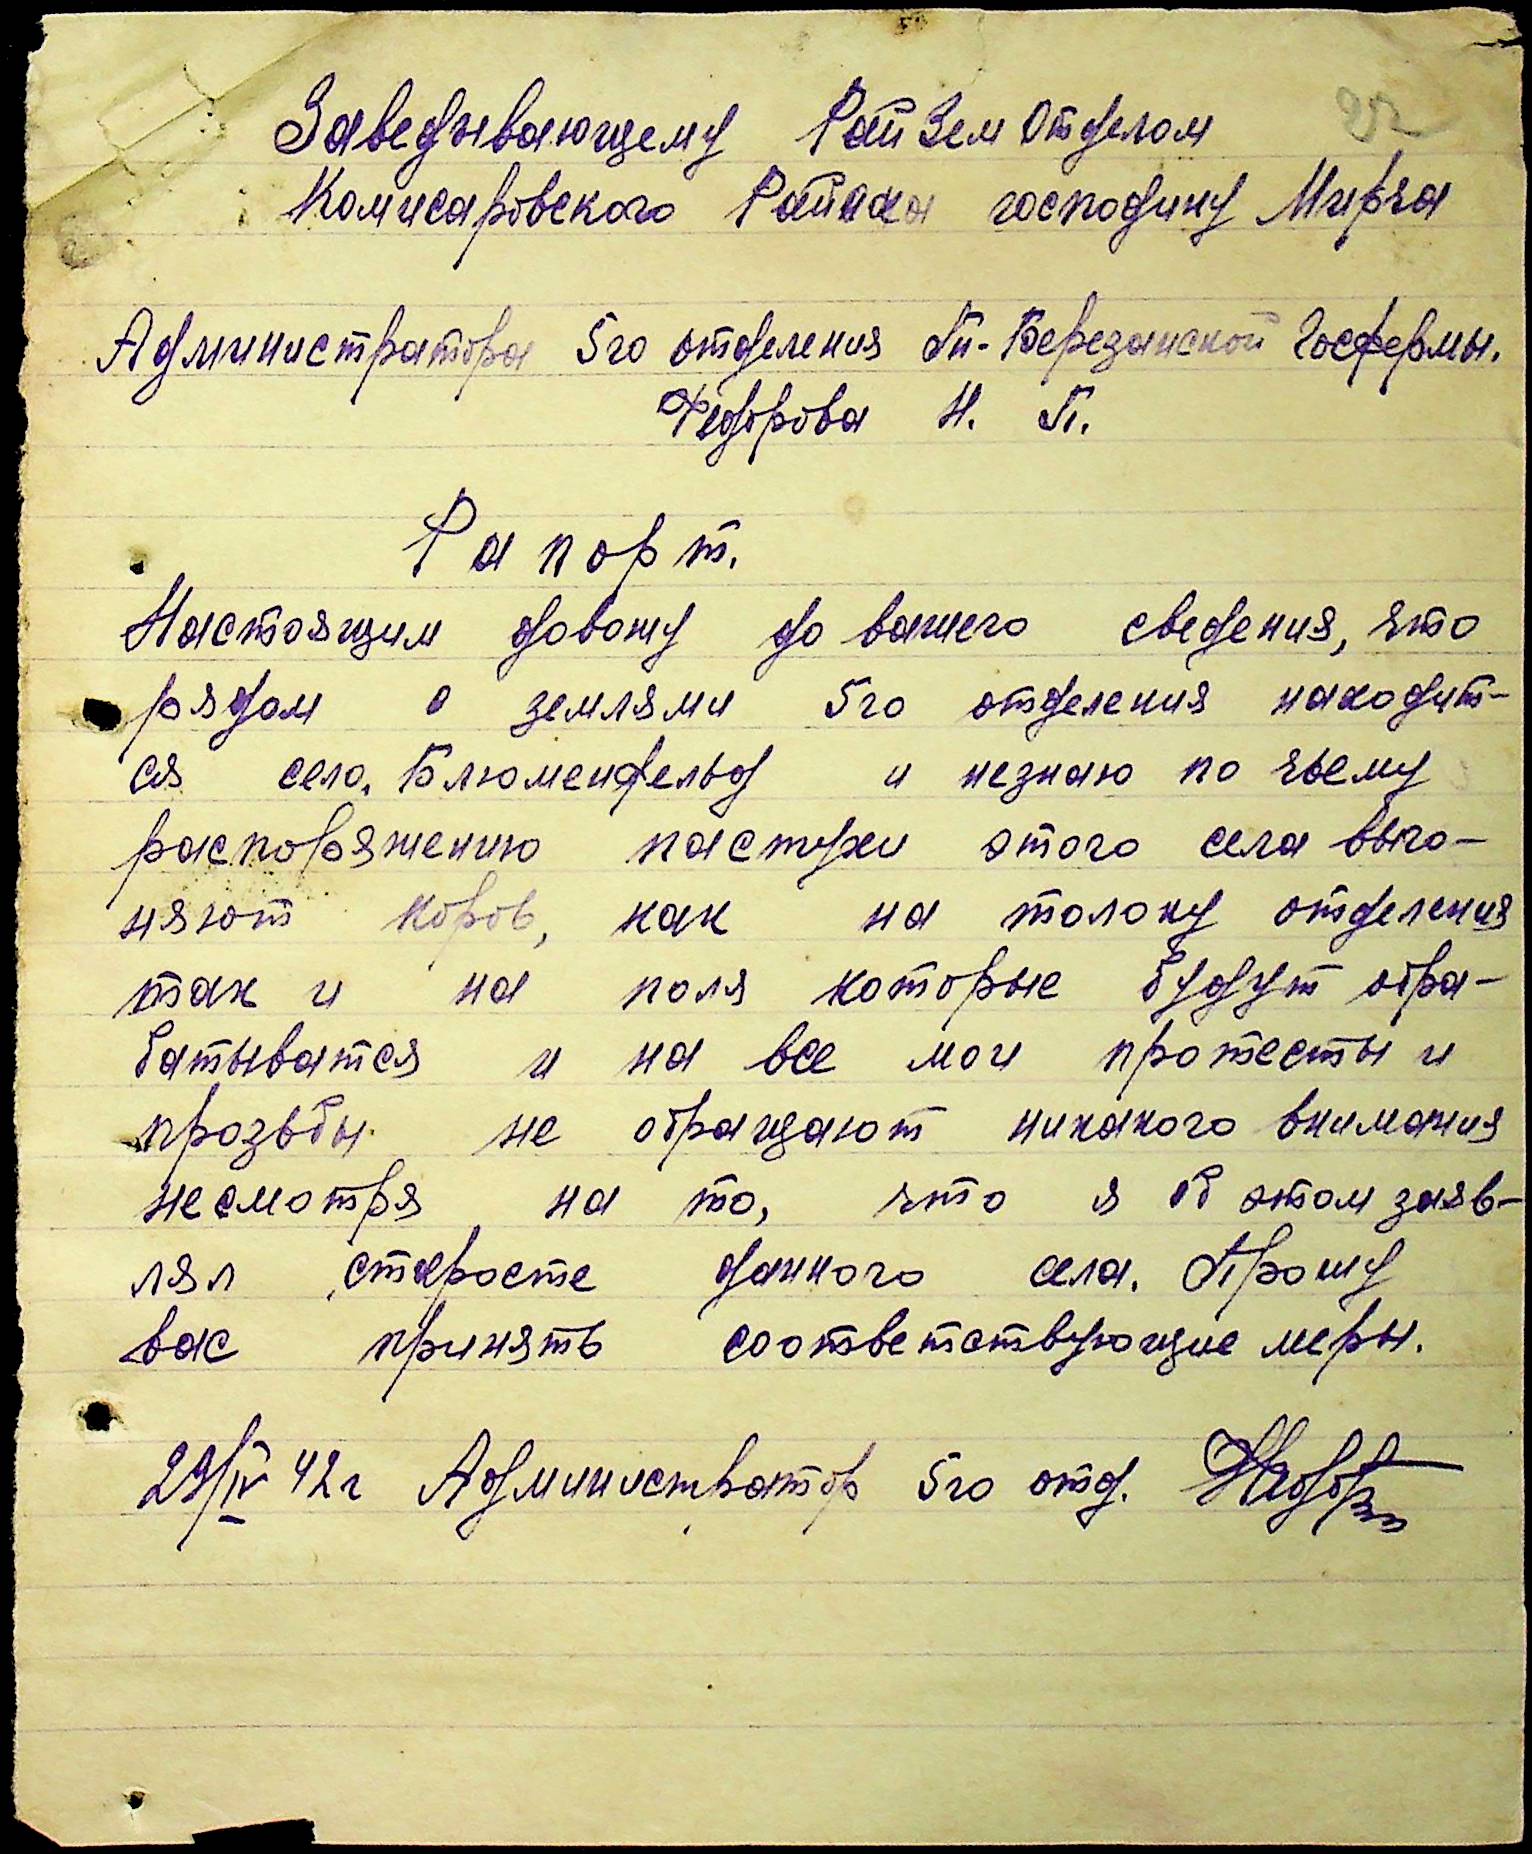 22
Заведывающему РайЗемОтделом
Комисаровского Района господину Мирча
Администратора 5го отделения Ст.-Березанской Госфермы.
Федорова Н. П.
Рапорт.
Настоящим довожу до вашего сведения, что
рядом с землями 5го отделения находит-
ся село. Блюменфельд и незнаю по чьему
распоряжению пастухи этого села выго-
няют коров, как на толоку отделения
так и на поля которые будут обра-
батыватся и на все мои протесты и
прозьбы не обращают никакого внимания
несмотря на то, что я об этом заяв-
лял старосте данного села. Прошу
вас принять соответствующие меры.
29/IV 42г Администратор 5го отд.